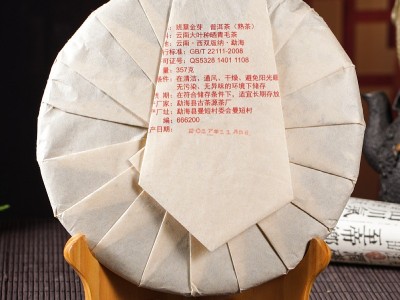 ：班章金芽 普洱茶（熟茶）
：云南大叶种晒青毛茶
：云南·西双版纳·勐海
行标准：GB/T 22111-2008
可证号：QS5328 1401 1106
量：357克
条件：在清洁、通风、干燥、避免阳光
无污染、无异味的环境下储存
期：在符合储存条件下，适宜长期存放
厂家：勐海县古茶源茶厂
厂址：勐海县曼短村委会曼短村
编：666200
产日期：